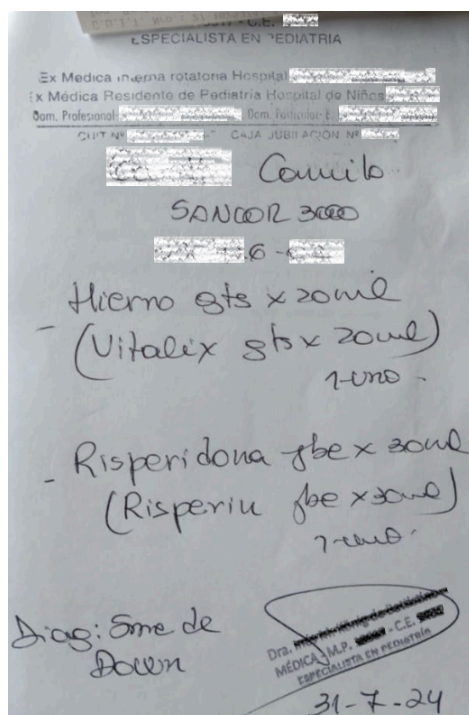 C.E.
ESPECIALISTA EN PEDIATRIA
Ex Medica interna rotatoria Hospital
Ex Médica Residente de Pediatria Hospital de Niños
Dom. Profesional Dom. Particular
CUIT Nº CAJA JUBILACIÓN Nº
Camilo
SANCOR 3000
6
- Hierro gts x 20ml
(Vitalix gts x 20ml)
1-uno.
- Risperidona jbe x 30ml
(Risperin jbe x 30ml)
1-uno.
Diag: Sme de
Down
Dra.
MÉDICA - M.P. - C.E.
ESPECIALISTA EN PEDIATRÍA
31-7-24